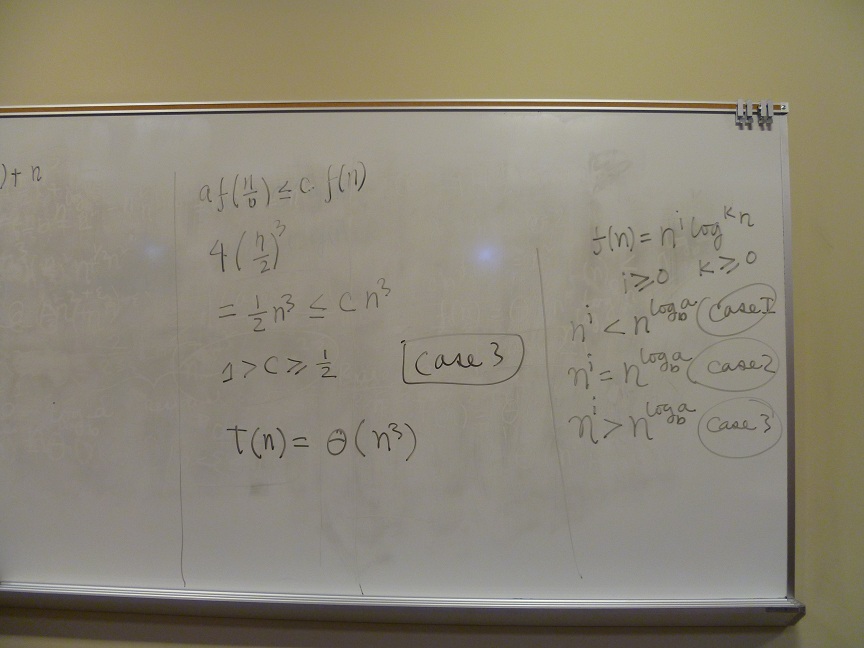 )+ n
a f(n/b) ≤ c f(n)
4 (n/2)³
= 1/2 n³ ≤ C n³
1 > C ≥ 1/2
Case 3
T(n) = Θ(n³)
f(n) = nⁱ logᵏ n
i ≥ 0 k ≥ 0
nⁱ < n^(log_b a) Case 1
nⁱ = n^(log_b a) Case 2
nⁱ > n^(log_b a) Case 3